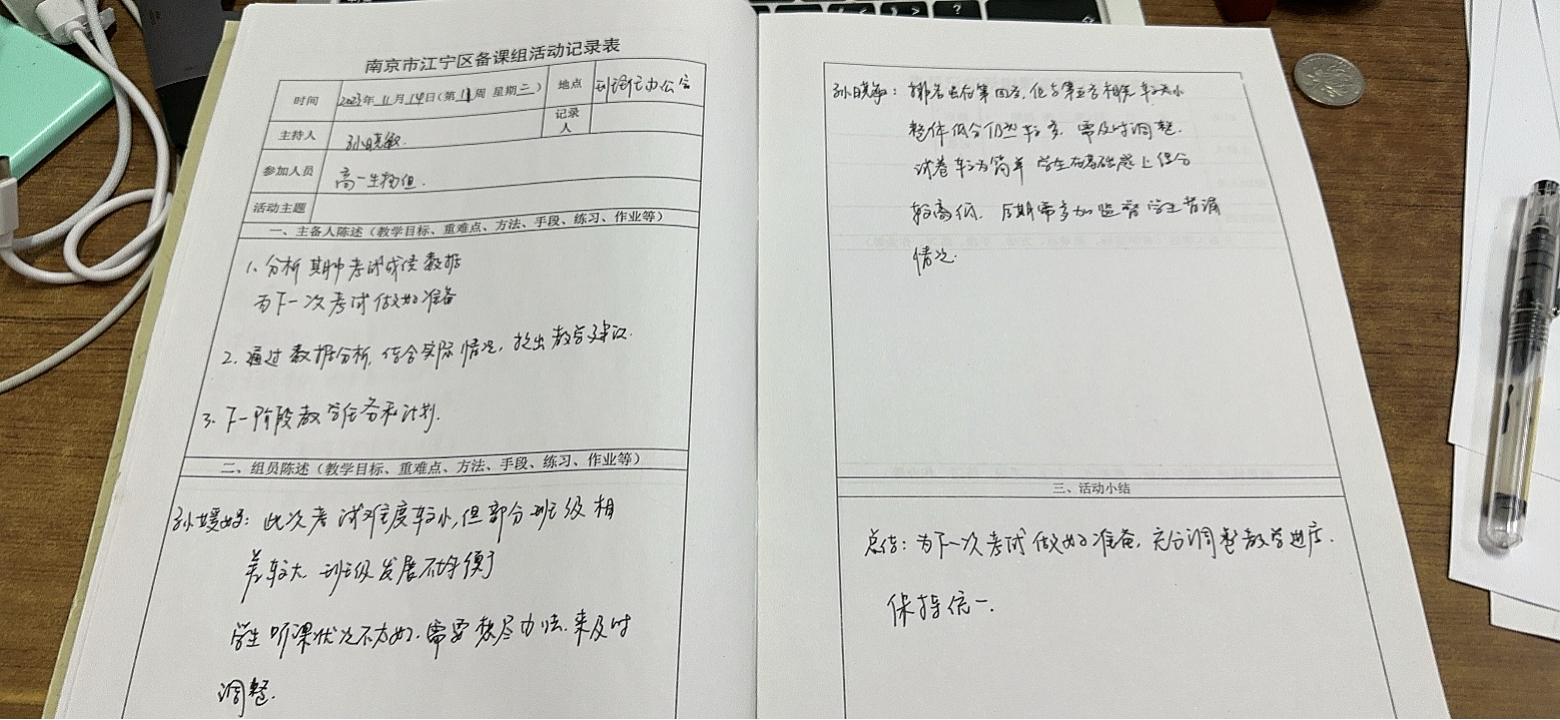 南京市江宁区备课组活动记录表
时间 2023年 11月 14日(第 11周 星期二) 地点 班主任办公室
主持人 孙晓敏. 记录人
参加人员 高一生物组.
活动主题
一、主备人陈述(教学目标、重难点、方法、手段、练习、作业等)
1. 分析期中考试成绩数据
为下一次考试做好准备
2. 通过数据分析, 结合实际情况, 提出教学建议.
3. 下一阶段教学任务和计划.
二、组员陈述(教学目标、重难点、方法、手段、练习、作业等)
孙媛: 此次考试难度较小,但部分班级相
差较大 班级发展不均衡
学生听课状况不太好. 需要想尽办法. 来及时
调整.
孙晓敏: 排名 第四 但与第五名相差较小
整体低分仍然较多, 需及时调整.
试卷较为简单 学生在基础 上得分
较高低. 后期需多加监督学生背诵
情况.
三、活动小结
总结: 为下一次考试做好准备, 充分调整教学进度.
保持统一.